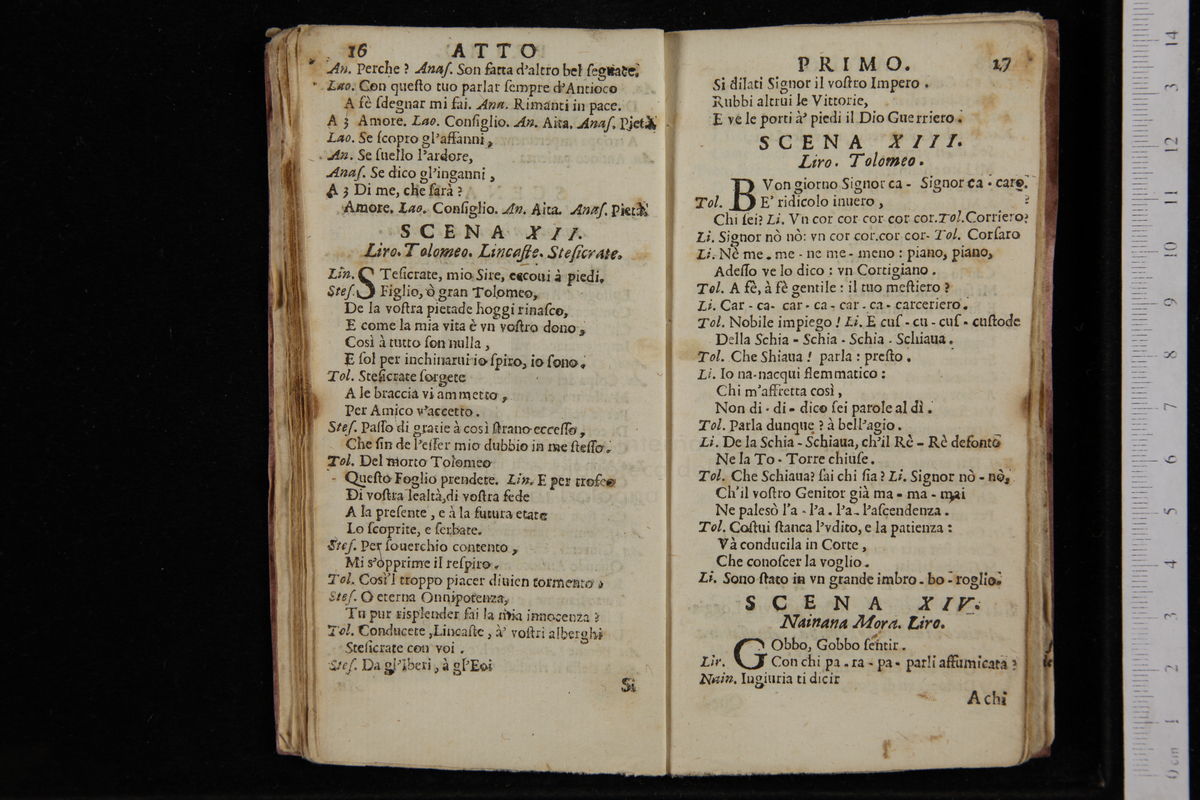 16 ATTO
An. Perche ? Anaſ. Son fatta d'altro bel ſeguace.
Lao. Con queſto tuo parlar ſempre d'Antioco
A fè ſdegnar mi fai. Ana. Rimanti in pace.
A 3 Amore. Lao. Conſiglio. An. Aita. Anaſ. Pietà
Lao. Se ſcopro gl'affanni,
An. Se ſuello l'ardore,
Anaſ. Se dico gl'inganni,
A 3 Di me, che ſarà ?
Amore. Lao. Conſiglio. An. Aita. Anaſ. Pietà
SCENA XII.
Liro. Tolomeo. Lincaſte. Steſicrate.
Lin. STeſicrate, mio Sire, eccoui à piedi.
Steſ. Figlio, ò gran Tolomeo,
De la voſtra pietade hoggi rinaſco,
E come la mia vita è vn voſtro dono,
Così à tutto ſon nulla,
E ſol per inchinarui io ſpiro, io ſono.
Tol. Steſicrate ſorgete
A le braccia vi ammetto,
Per Amico v'accetto.
Steſ. Paſſo di gratie à così ſtrano ecceſſo,
Che ſin de l'eſſer mio dubbio in me ſteſſo.
Tol. Del morto Tolomeo
Queſto Foglio prendete. Lin. E per trofeo
Di voſtra lealtà, di voſtra fede
A la preſente, e à la futura etate
Lo ſcoprite, e ſerbate.
Steſ. Per ſouerchio contento,
Mi s'opprime il reſpiro.
Tol. Così'l troppo piacer diuien tormento.
Steſ. O eterna Onnipotenza,
Tu pur risplender fai la mia innocenza ?
Tol. Conducete, Lincaſte, à' voſtri alberghi
Steſicrate con voi.
Steſ. Da gl'Iberi, à gl'Eoi
Si
PRIMO. 17
Si dilati Signor il voſtro Impero.
Rubbi altrui le Vittorie,
E ve le porti à' piedi il Dio Guerriero.
SCENA XIII.
Liro. Tolomeo.
BVon giorno Signor ca - Signor ca - caro.
Tol. E' ridicolo inuero, ?
Chi ſei? Li. Vn cor cor cor cor cor. Tol. Corriero?
Li. Signor nò nò: vn cor cor. cor cor- Tol. Corſaro
Li. Nè me. me - ne me - meno : piano, piano,
Adeſſo ve lo dico : vn Cortigiano.
Tol. A fè, à fè gentile : il tuo meſtiero ?
Li. Car - ca- car - ca - car - ca - carceriero.
Tol. Nobile impiego ! Li. E cuſ - cu - cuſ - cuſtode
Della Schia - Schia - Schia - Schiaua.
Tol. Che Shiaua ! parla : preſto.
Li. Io na-nacqui flemmatico :
Chi m'affretta così,
Non di - di - dico ſei parole al dì.
Tol. Parla dunque ? à bell'agio.
Li. De la Schia - Schiaua, ch'il Rè - Rè defonto
Ne la To - Torre chiuſe.
Tol. Che Schiaua? ſai chi ſia? Li. Signor nò - nò,
Ch'il voſtro Genitor già ma - ma - mai
Ne palesò l'a - l'a. l'a. l'aſcendenza.
Tol. Coſtui ſtanca l'vdito, e la patienza :
Và conducila in Corte,
Che conoſcer la voglio.
Li. Sono ſtato in vn grande imbro - bo - roglio.
SCENA XIV.
Nainana Mora. Liro.
GObbo, Gobbo ſentir.
Lir. Con chi pa - ra - pa - parli affumicata ?
Nain. Ingiuria ti dicir
A chi